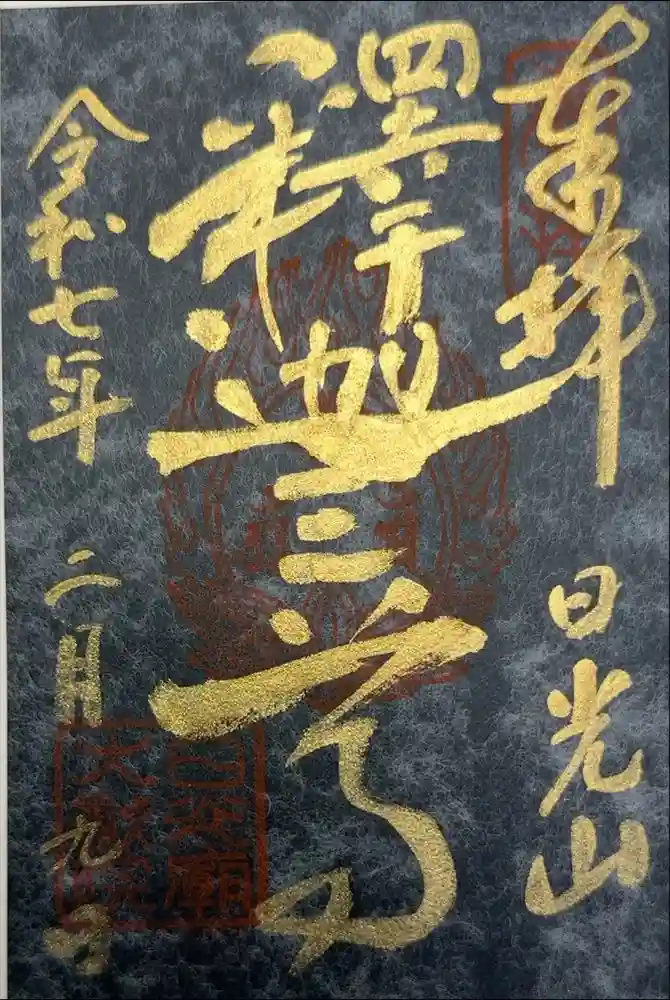 奉拝　日光山
釋迦三尊
令和七年　二月　九日